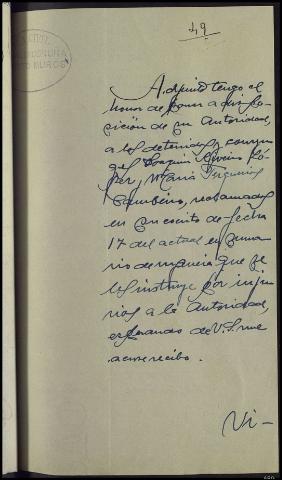 49
Adjunto tengo el
honor de poner a dispo-
sición de su Autoridad,
a los detenidos y
Joaquin Riveiro Ló-
pez, y Maria
reclamados
en su escrito de fecha
17 del actual en suma-
rio de que se
les instruye por inju-
rias a la Autoridad,
esperando de V.S. me
acuse recibo.
Vi-
MUROS